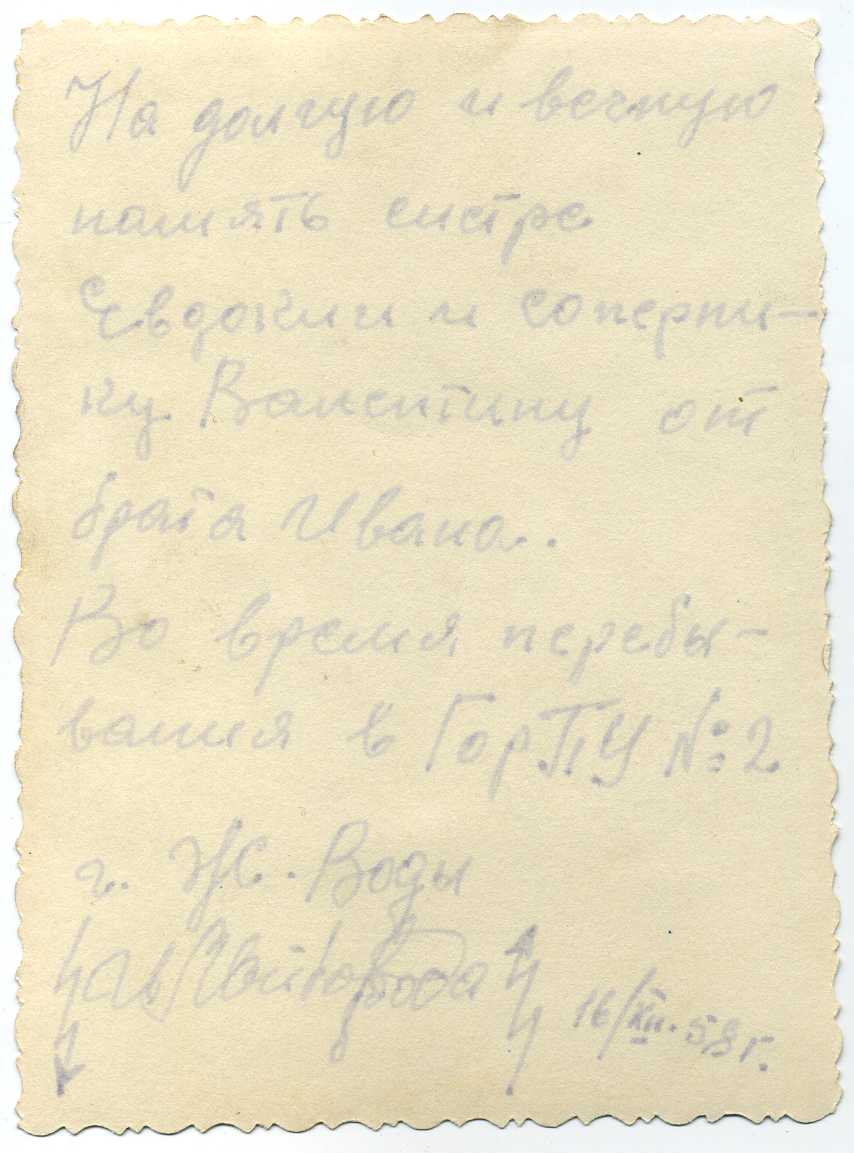 На долгую и вечную
память систре
Евдокии и соперни-
ку Валентину от
брата Ивана.
Во время перебы-
вания в ГорПУ №2
г. Ж. Воды
16/XII. 58 г.